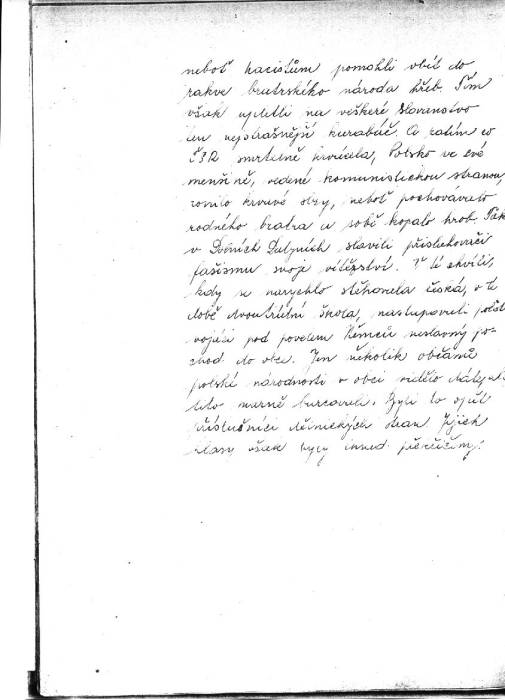 neboť nacistům pomohli vbít do
rakve bratrského národa hřeb. Tím
však upletli na veškeré slovanstvo
ten nejstrašnější karabáč. A zatím co
ČSR smrtelně krvácela, Polsko ve své
menšině, vedené komunistickou stranou,
ronilo krvavé slzy, neboť pochovávalo
rodného bratra a sobě kopalo hrob. Tak
v Dolních slavili přisluhovači
fašismu svoje vítězství. V té chvíli,
kdy se narychlo stěhovala česká, v té
době dvoutřídní škola, nastupovali polští
vojáci pod povelem Němců neslavný po-
chod do obce. Jen několik občanů
polské národnosti v obci vidělo
tito marně burcovali. Byli to opět
příslušníci dělnických stran. Jejich
hlasy však byly ihned